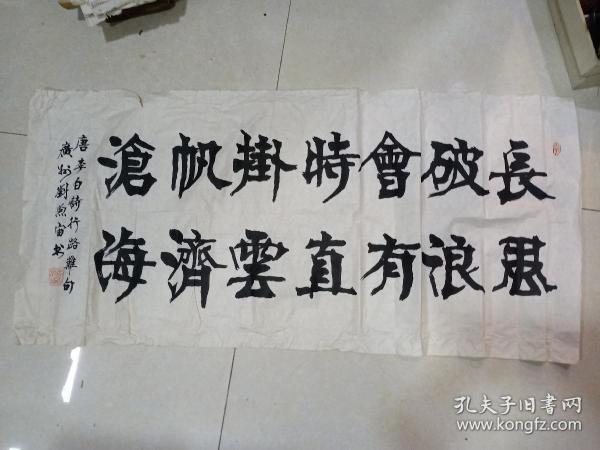 長風
破浪
會有
時直
掛雲
帆濟
滄海
唐李白詩行路難句
廣州劉照宙书
孔夫子旧書网
www.kongfz.com